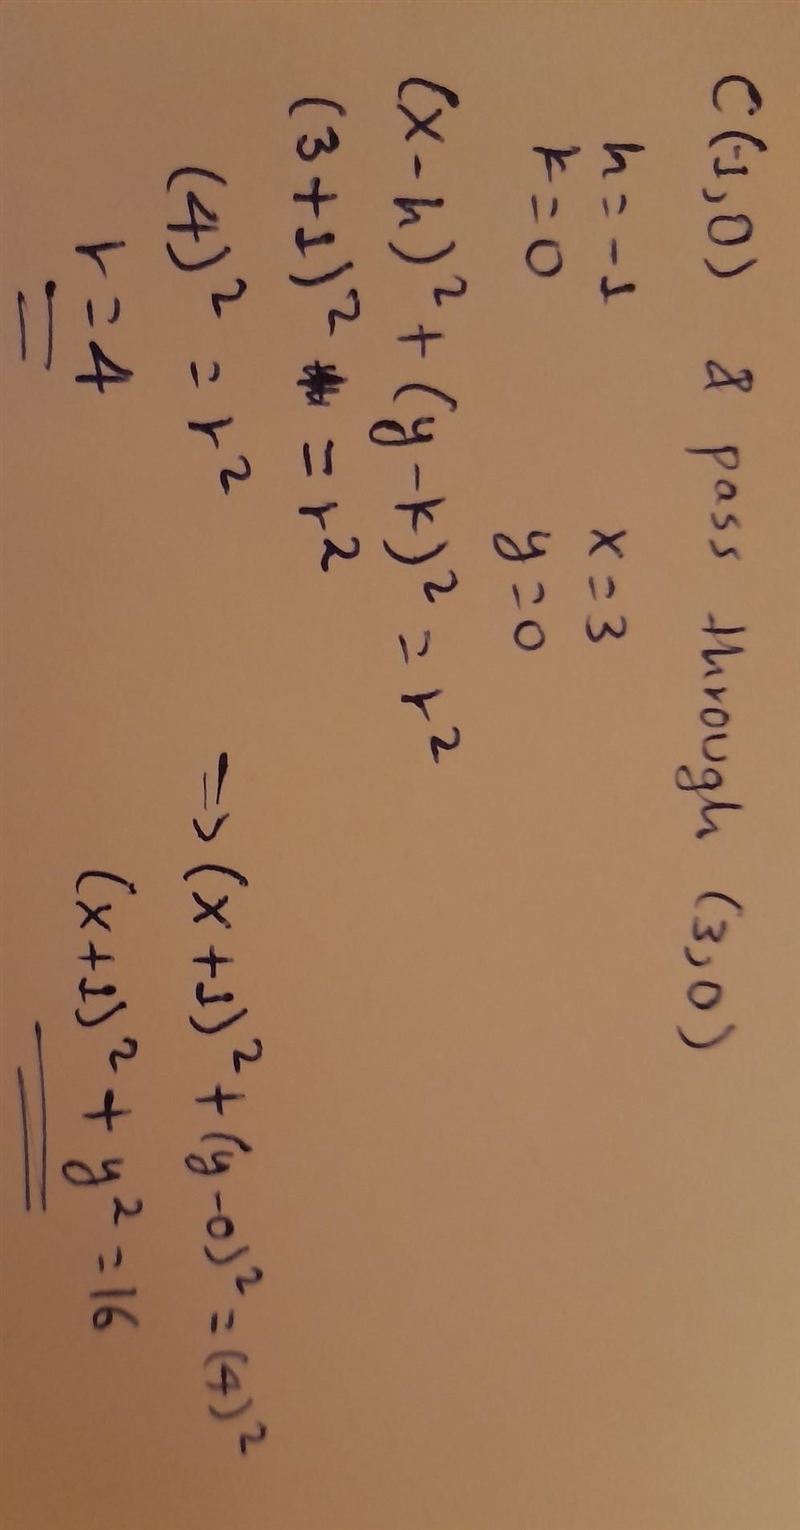 C(-1,0) & pass through (3,0)
h=-1 x=3
k=0 y=0
(x-h)²+(y-k)²=r²
(3+1)² =r²
(4)²=r²
r=4
=>(x+1)²+(y-0)²=(4)²
(x+1)²+y²=16